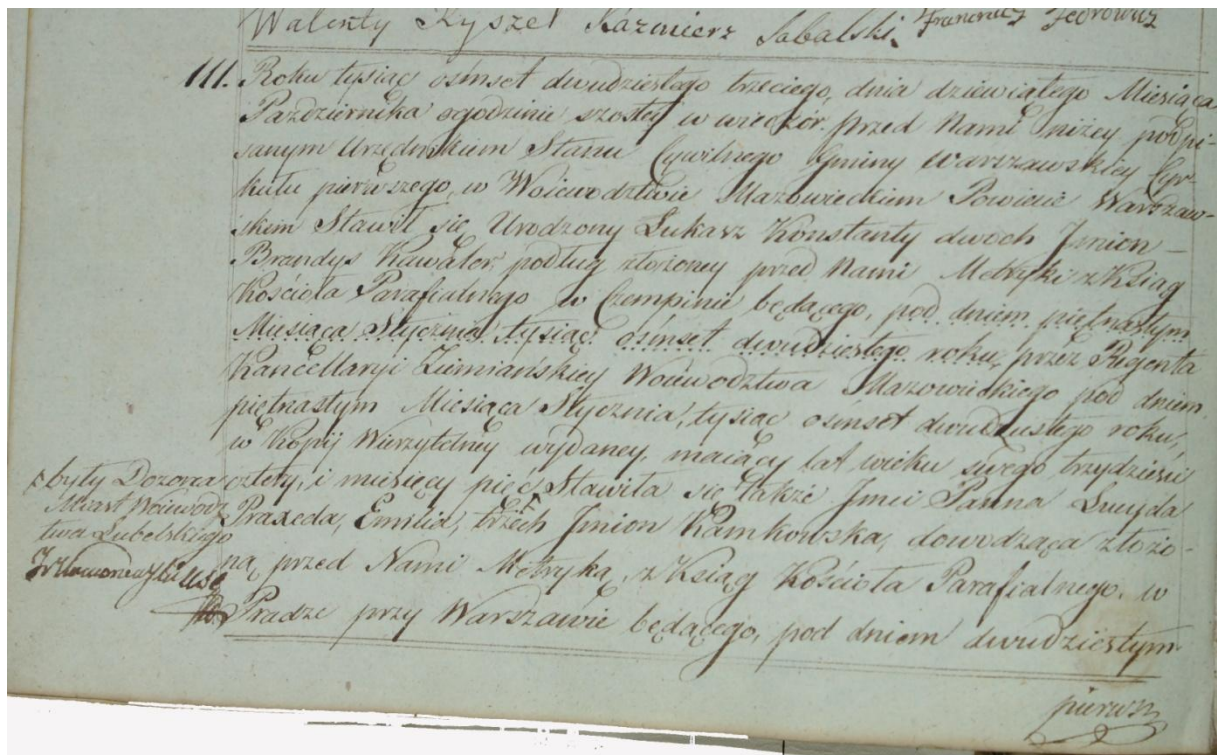 Walenty Kyszel Kazmierz Sabalski. Franciszek Jedrowicz
111. Roku tysiąc ośmset dwudziestego trzeciego, dnia dziewiątego Miesiąca
Pazdziernika ogodzinie szostey w wieczór. przed Nami niżey podpi-
sanym Urzędnikiem Stanu Cywilnego Gminy Warszawskiey Cyr-
kułu pierwszego, w Woiewodztwie Mazowieckiem Powiecie Warszaw-
skiem Stawił się Urodzony Łukasz Konstanty dwoch Jmion —
Brandys Kawaler, podług złożoney przed Nami Metryki z Ksiąg
Kościoła Parafialnego w Czempinie będącego, pod dniem piętnastym
Miesiąca Stycznia tysiąc ośmset dwudziestego roku, przez Regenta
Kancellaryi Ziemiańskiey Woiewodztwa Mazowieckiego pod dniem
piętnastym Miesiąca Stycznia, tysiąc ośmset dwudziestego roku,
w Kopij Wierzytelney wydaney. maiący lat wieku swego trzydzieści
cztery, i miesięcy pięć Stawiła się także Jmci Panna Lucyda
Praxeda, Emilia, trzech Jmion Kamkowska, dowodząca złożo-
ną przed Nami Metryką, z Ksiąg Kościoła Parafialnego. w
Pradze przy Warszawie będącego, pod dniem dwudziestym
pierwsz
były Dozorca
Miast Woiewodz
twa Lubelskiego